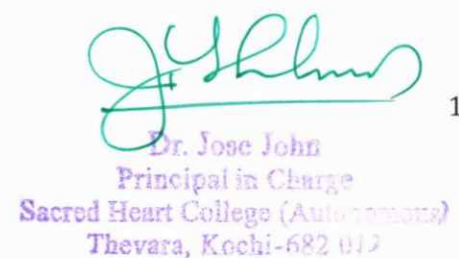 1
Dr. Jose John
Principal in Charge
Sacred Heart College (Autonomous)
Thevara, Kochi-682 013